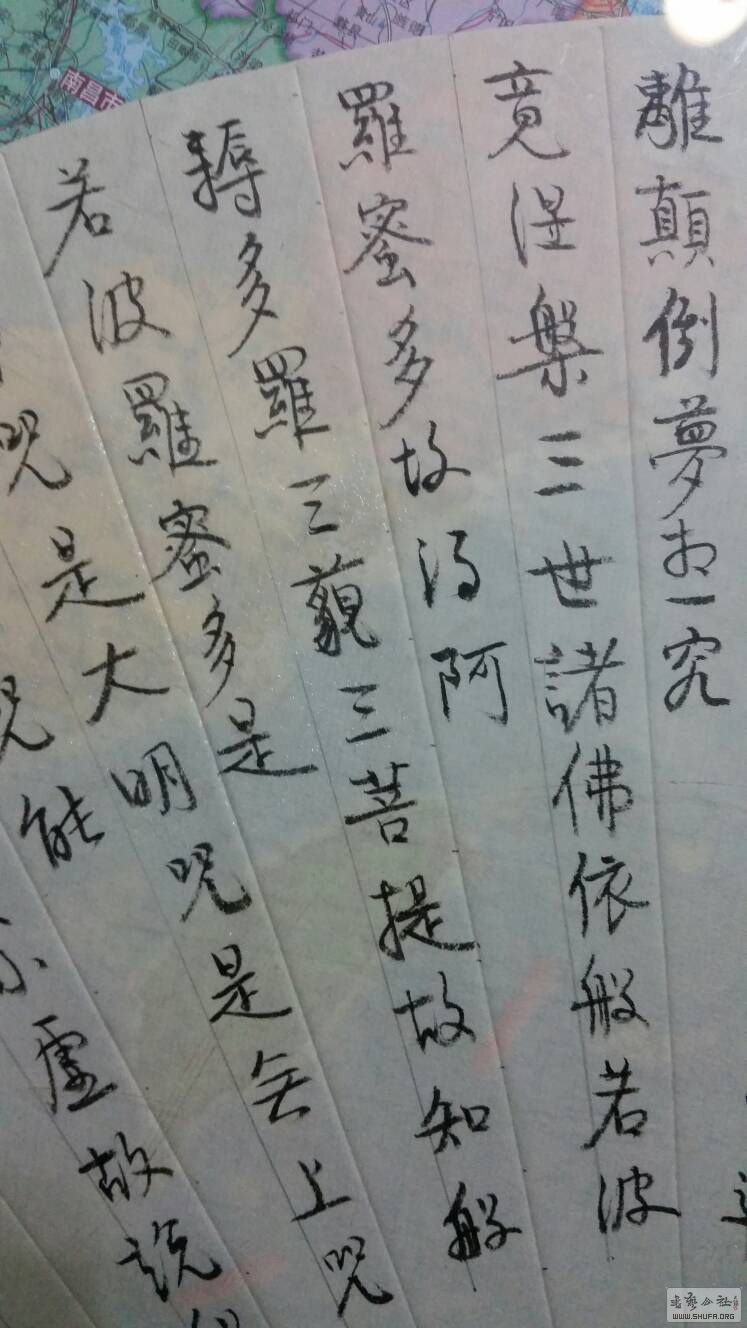 離顛倒夢想究
竟涅槃三世諸佛依般若波
羅蜜多故得阿
耨多羅三藐三菩提故知般
若波羅蜜多是
咒是大明咒是無上咒
咒能
不虛故説
南昌市
书艺公社
WWW.SHUFA.ORG